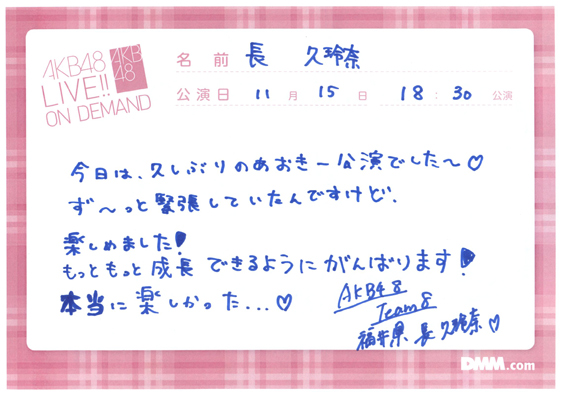 AKB48
LIVE!!
ON DEMAND
AKB
48
名前 長 久玲奈
公演日 11月 15日 18:30 公演
今日は、久しぶりのあおきー公演でした〜♡
ず〜っと緊張していたんですけど、
楽しめました!
もっともっと成長できるようにがんばります!
本当に楽しかった...♡
AKB48
Team8
福井県 長 久玲奈♡
DMM.com